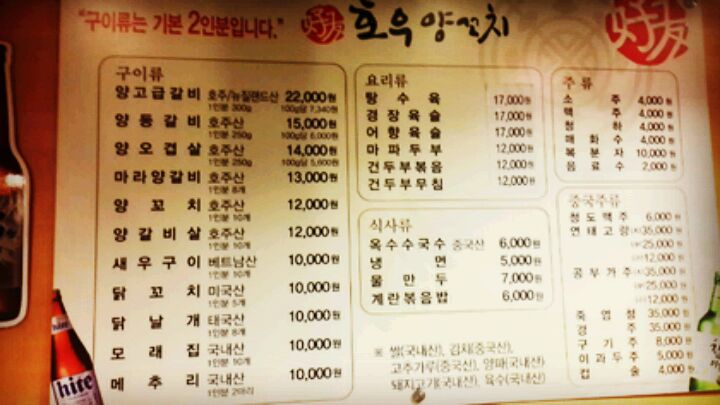 "구이류는 기본 2인분입니다."
好友 호우양꼬치
好友
구이류
양고급갈비 호주/뉴질랜드산 22,000원
1인분 300g 100g당 7,340원
양등갈비 호주산 15,000원
1인분 250g 100g당 6,000원
양오겹살 호주산 14,000원
1인분 250g 100g당 5,600원
마라양갈비 호주산 13,000원
1인분 8개
양꼬치 호주산 12,000원
1인분 10개
양갈비살 호주산 12,000원
1인분 10개
새우구이 베트남산 10,000원
1인분 10개
닭꼬치 미국산 10,000원
1인분 5개
닭날개 태국산 10,000원
1인분 8개
모래집 국내산 10,000원
1인분 8개
메추리 국내산 10,000원
1인분 2마리
요리류
탕수육 17,000원
경장육슬 17,000원
어향육슬 17,000원
마파두부 12,000원
건두부볶음 12,000원
건두부무침 12,000원
식사류
옥수수국수 중국산 6,000원
냉면 5,000원
물만두 7,000원
계란볶음밥 6,000원
※ 쌀(국내산), 김치(중국산),
고추가루(중국산), 양파(국내산)
돼지고기(국내산), 육수(국내산)
주류
소주 4,000원
맥주 4,000원
청하 4,000원
매화수 4,000원
복분자 10,000원
음료수 2,000원
중국주류
청도맥주 6,000원
연태고량(大)35,000원
(中)25,000원
(小)12,000원
공부가주(大)35,000원
(中)25,000원
(小)12,000원
죽엽청 35,000원
경주 35,000원
구기주 8,000원
이과두주 5,000원
컵술 4,000원
hite